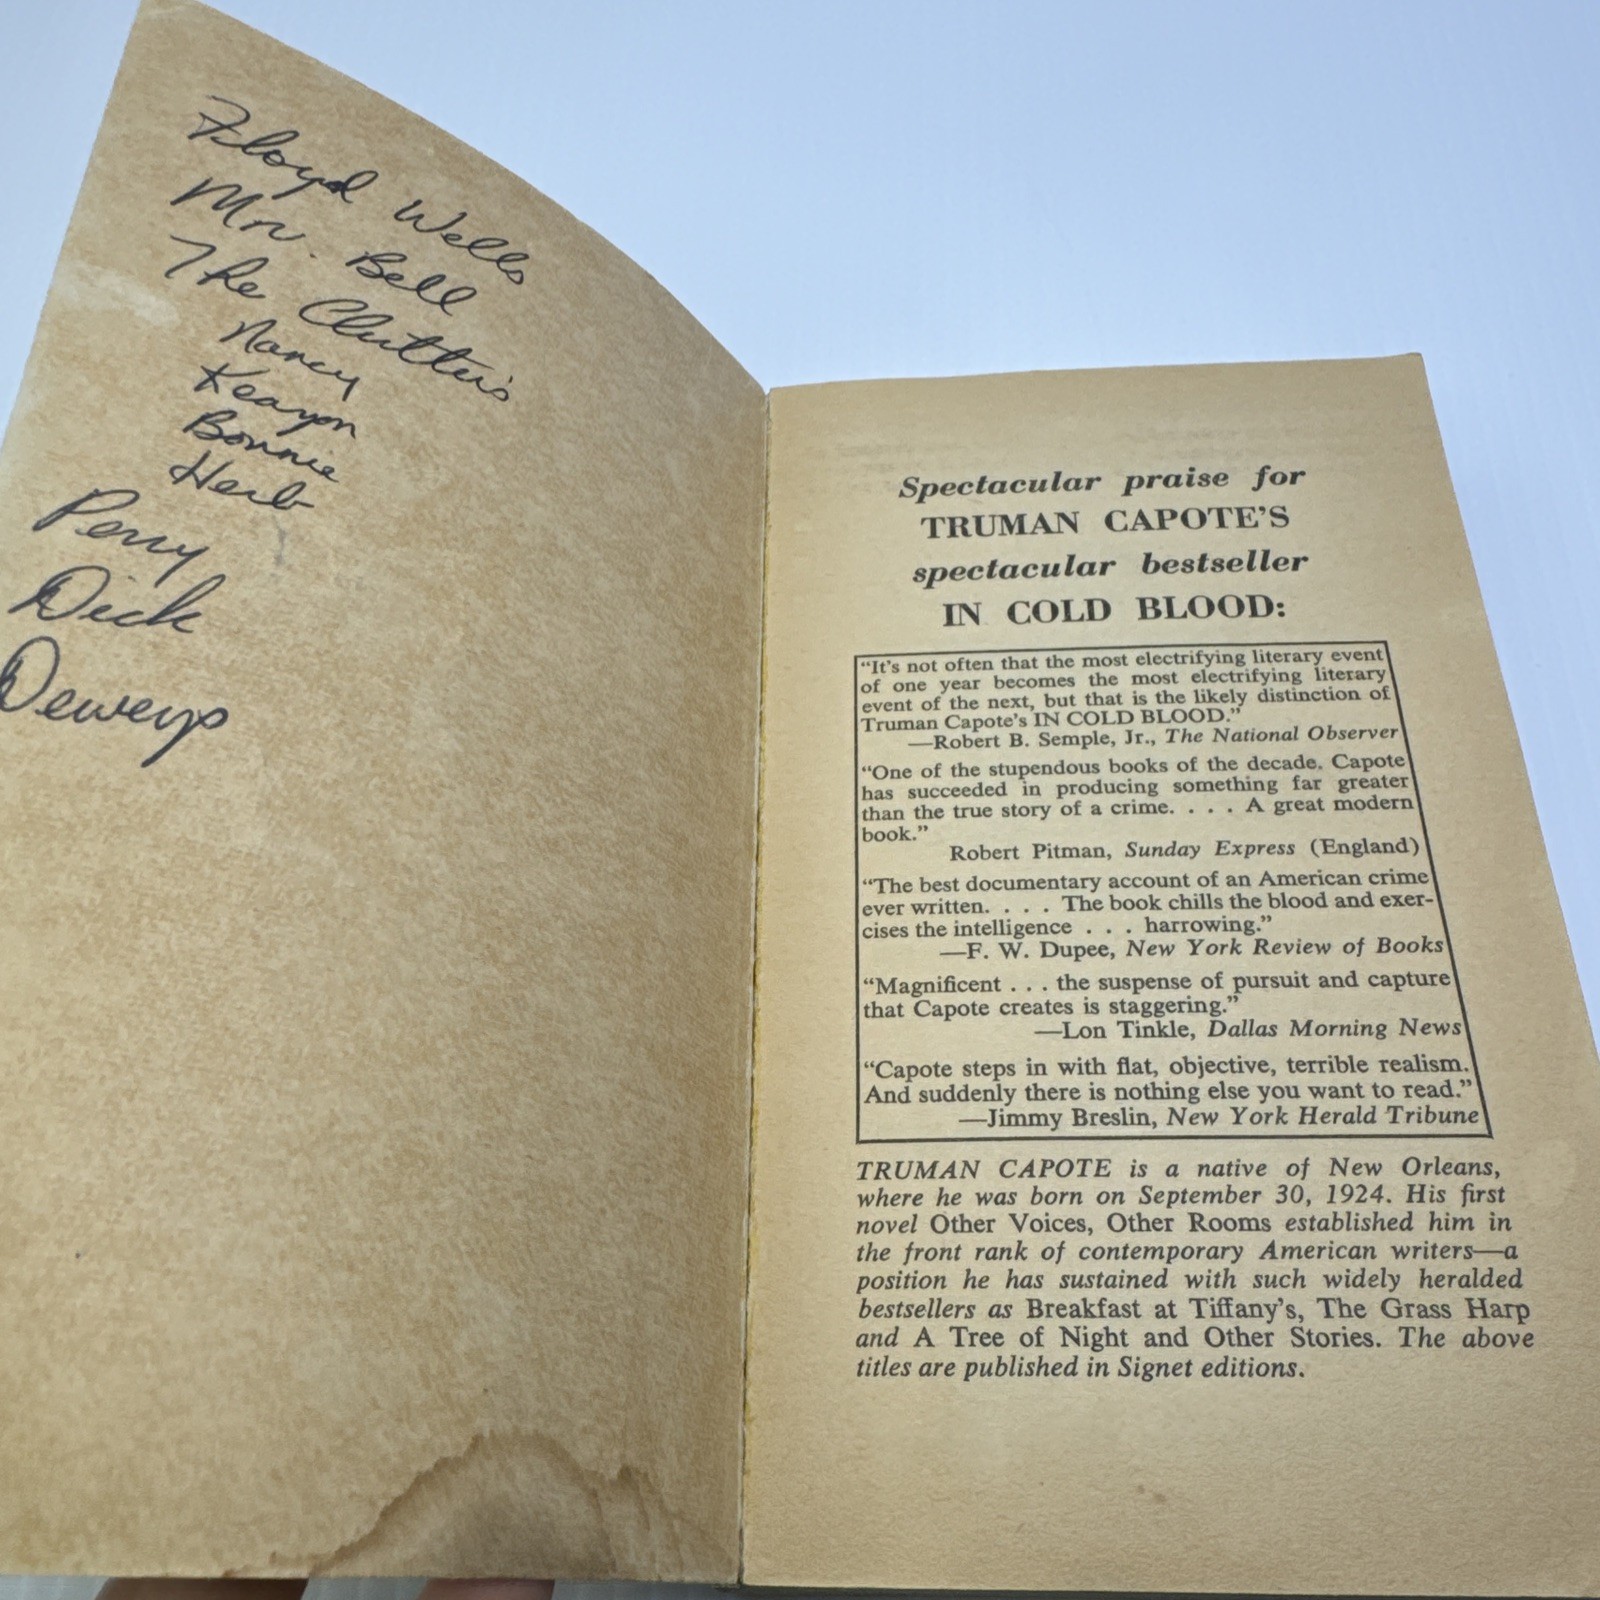 Floyd Wells
Mr. Bell
The Clutters
Nancy
Kenyon
Bonnie
Herb
Perry
Dick
Deweys
Spectacular praise for
TRUMAN CAPOTE'S
spectacular bestseller
IN COLD BLOOD:
“It's not often that the most electrifying literary event
of one year becomes the most electrifying literary
event of the next, but that is the likely distinction of
Truman Capote's IN COLD BLOOD.”
—Robert B. Semple, Jr., The National Observer
“One of the stupendous books of the decade. Capote
has succeeded in producing something far greater
than the true story of a crime. . . . A great modern
book.”
Robert Pitman, Sunday Express (England)
“The best documentary account of an American crime
ever written. . . . The book chills the blood and exer-
cises the intelligence . . . harrowing.”
—F. W. Dupee, New York Review of Books
“Magnificent . . . the suspense of pursuit and capture
that Capote creates is staggering.”
—Lon Tinkle, Dallas Morning News
“Capote steps in with flat, objective, terrible realism.
And suddenly there is nothing else you want to read.”
—Jimmy Breslin, New York Herald Tribune
TRUMAN CAPOTE is a native of New Orleans,
where he was born on September 30, 1924. His first
novel Other Voices, Other Rooms established him in
the front rank of contemporary American writers—a
position he has sustained with such widely heralded
bestsellers as Breakfast at Tiffany's, The Grass Harp
and A Tree of Night and Other Stories. The above
titles are published in Signet editions.